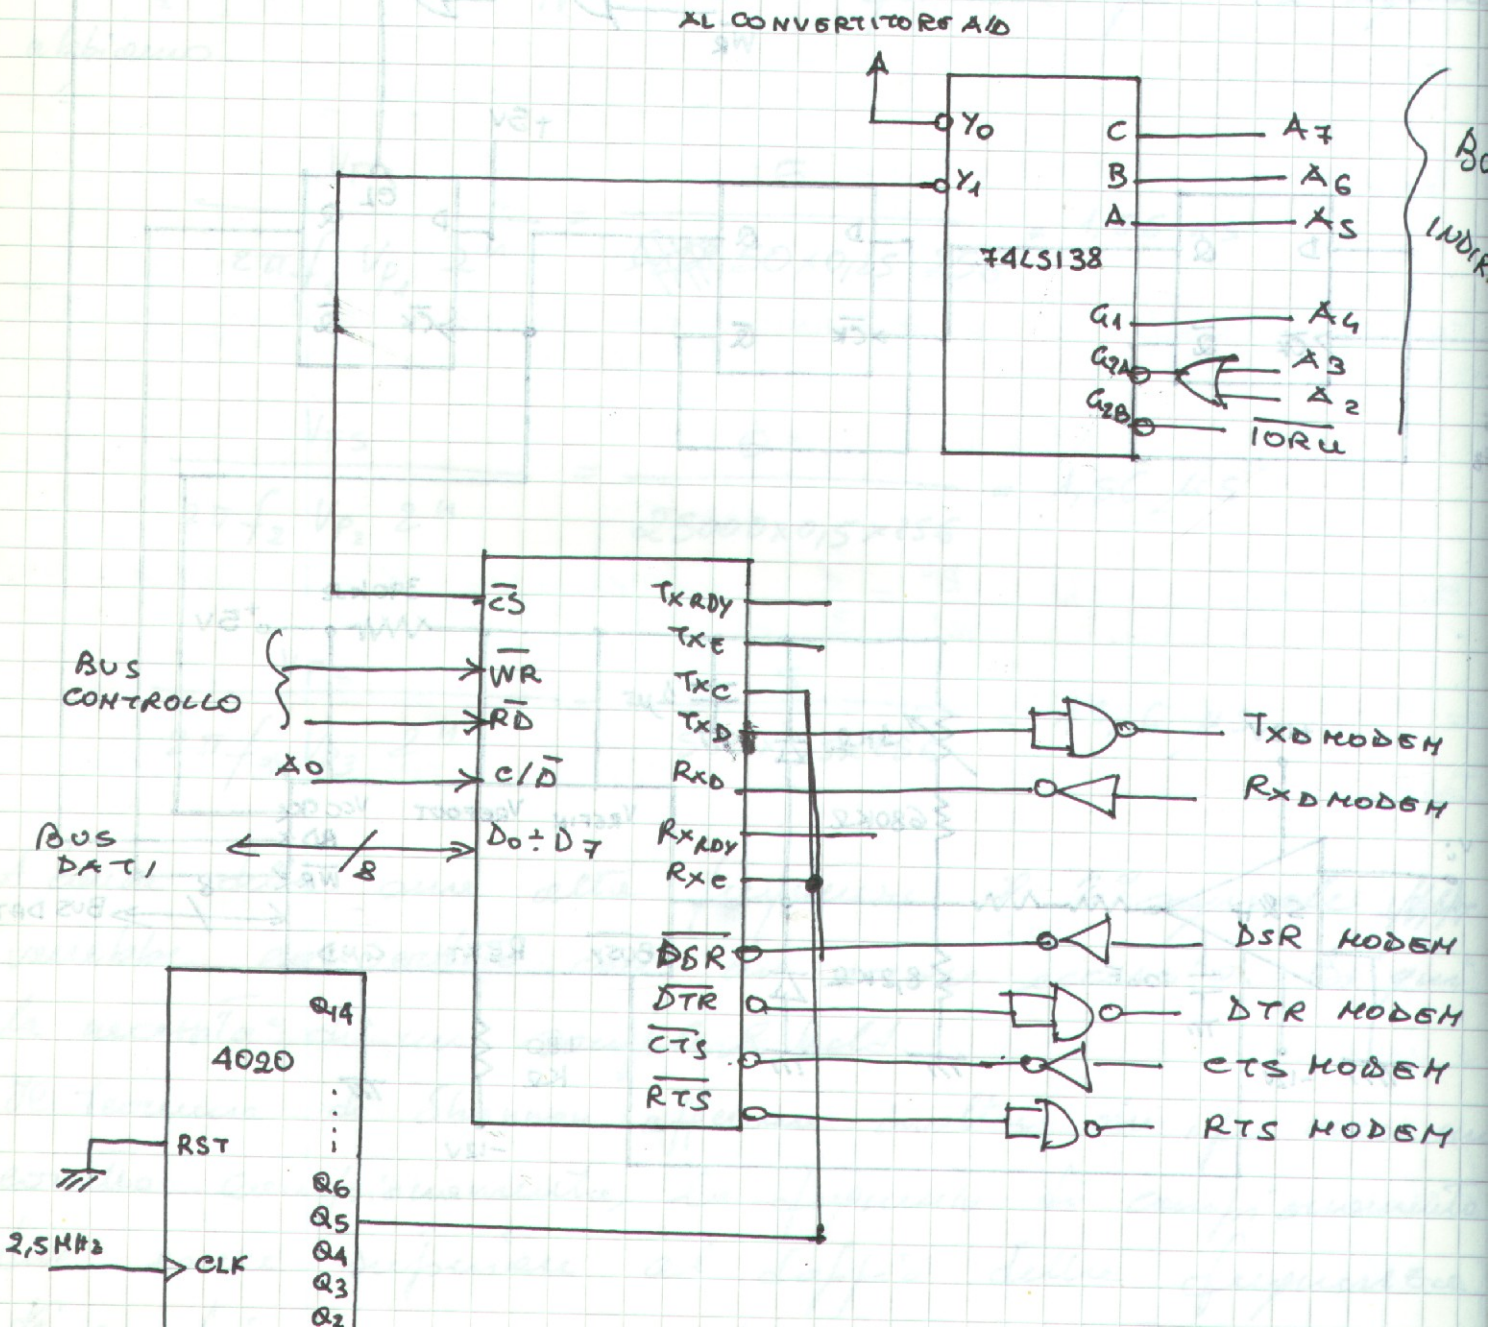 AL CONVERTITORE A/D
Y0
Y1
C
B
A
74LS138
G1
G2A
G2B
A7
A6
A5
A4
A3
A2
IORQ
CS
WR
RD
C/D
D0÷D7
BUS
CONTROLLO
A0
BUS
DATI
8
TXRDY
TXE
TXC
TXD
RXD
RXRDY
RXC
DSR
DTR
CTS
RTS
TXD MODEM
RXD MODEM
DSR MODEM
DTR MODEM
CTS MODEM
RTS MODEM
Q14
4020
RST
Q6
Q5
Q4
Q3
Q2
2,5 MHz
CLK